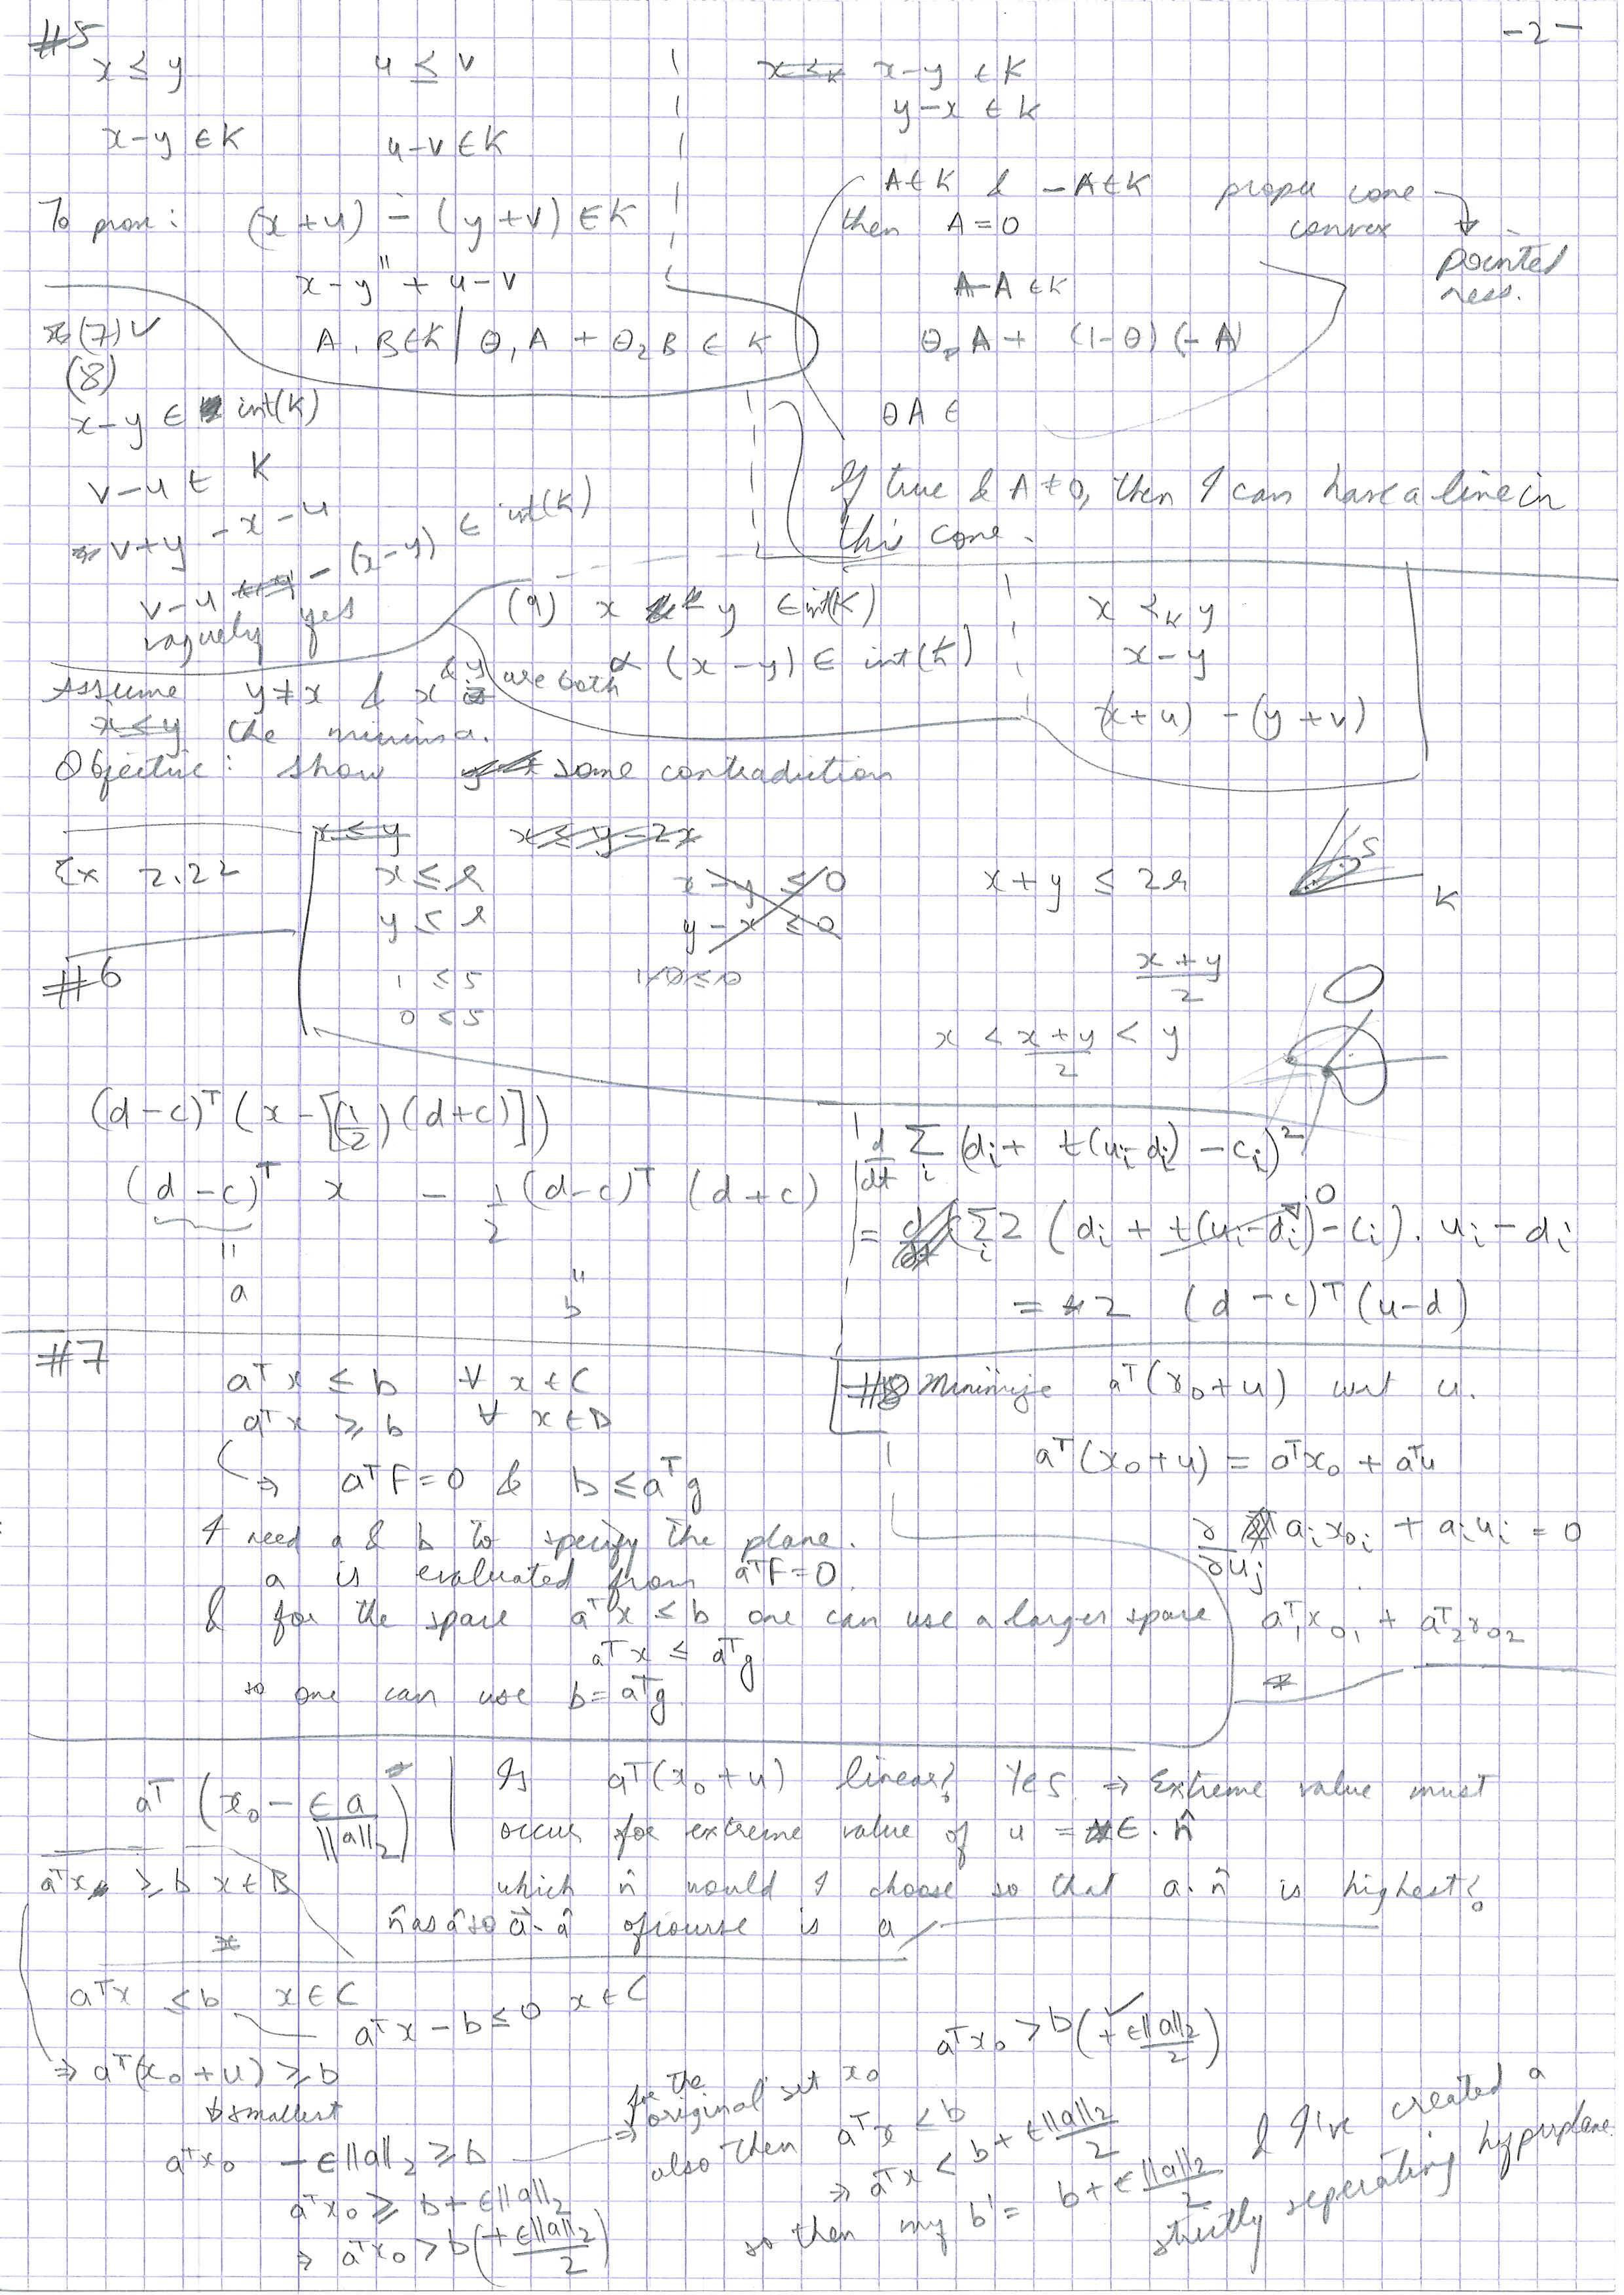 -2-
#5
x ≤ y    u ≤ v
x-y ∈ K    u-v ∈ K
To prove: (x+u) - (y+v) ∈ K
"
x-y + u-v
A, B ∈ K / θ₁A + θ₂B ∈ K
x-y ∈ K
y-x ∈ K
A ∈ K & -A ∈ K    proper cone
then A = 0    convex
pointed
ness.
A-A ∈ K
θ A + (1-θ)(-A)
θA ∈
If true & A ≠ 0, then I can have a line in
this cone.
(7) ✓
(8)
x-y ∈ int(K)
v-u ∈ K
v+y - x - u
v-u - (x-y) ∈ int(K)
vaguely yes
(9) x y ∈ int(K)
α (x-y) ∈ int(K)
x ≺_K y
x-y
(x+u) - (y+v)
Assume y ≠ x & x & y are both
x ≤ y the minima.
Objective: show some contradiction
Ex 2.22
x ≤ y    x ≤ y-2x
x ≤ r    x-y ≤ 0    x+y ≤ 2r
y ≤ r    y-x ≤ 0
1 ≤ 5    1/0 ≤ 0
0 ≤ 5
x+y
2
x < x+y/2 < y
S
K
#6
(d-c)ᵀ(x-[(1/2)(d+c)])
(d-c)ᵀ x - 1/2 (d-c)ᵀ (d+c)
"    "
a    b
d/dt Σᵢ (dᵢ + t(uᵢ-dᵢ) - cᵢ)²
= Σᵢ 2 (dᵢ + t(uᵢ-dᵢ) - cᵢ). uᵢ - dᵢ
0
= 2 (d-c)ᵀ(u-d)
#7
aᵀx ≤ b ∀ x ∈ C
aᵀx ≥ b ∀ x ∈ D
⇒ aᵀF = 0 & b ≤ aᵀg
I need a & b to specify the plane.
a is evaluated from aᵀF = 0.
& for the space aᵀx ≤ b one can use a larger space
aᵀx ≤ aᵀg
so one can use b = aᵀg.
#8 Minimize aᵀ(x₀+u) wrt u.
aᵀ(x₀+u) = aᵀx₀ + aᵀu
∂/∂uⱼ aᵢx₀ᵢ + aᵢuᵢ = 0
a₁ᵀx₀₁ + a₂ᵀx₀₂
aᵀ (x₀ - ∈a/||a||₂)
Is aᵀ(x₀+u) linear? Yes ⇒ Extreme value must
occur for extreme value of u = ∈. n̂
which n̂ would I choose so that a.n̂ is highest?
n̂ as â so a⃗.â ofcourse is a
aᵀx ≥ b x ∈ B
aᵀx ≤ b x ∈ C
aᵀx - b ≤ 0 x ∈ C
⇒ aᵀ(x₀+u) ≥ b
smallest
aᵀx₀ - ∈||a||₂ ≥ b
aᵀx₀ ≥ b + ∈||a||₂
⇒ aᵀx₀ > b(+ ∈||a||₂/2)
⇒ for the
original set x₀
aᵀx₀ > b(+ ∈||a||₂/2)
also then aᵀx < b
⇒ aᵀx < b + ∈||a||₂/2
so then my b' = b + ∈||a||₂/2 & I've created a
strictly seperating hyperplane